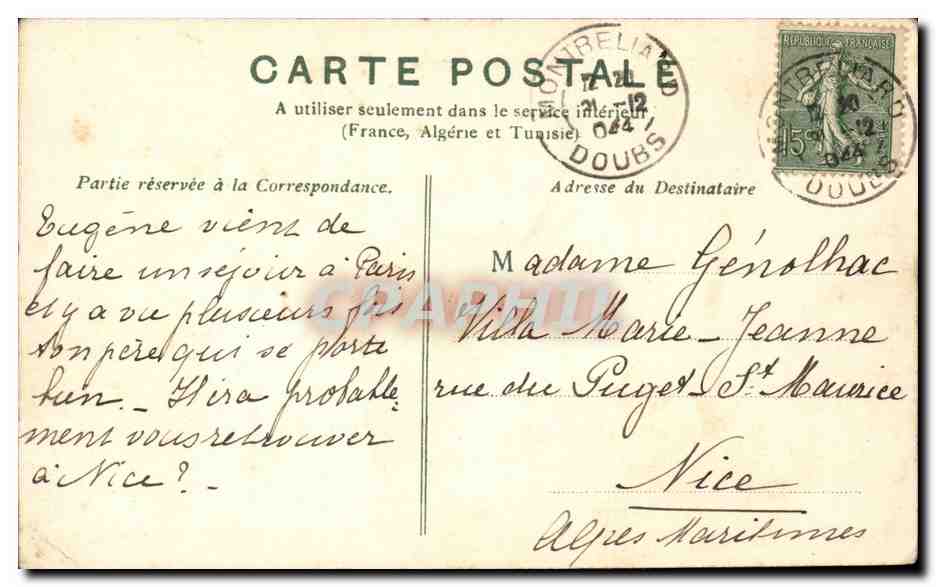 CARTE POSTALE
A utiliser seulement dans le service intérieur
(France, Algérie et Tunisie)
MONTBELIARD
DOUBS
REPUBLIQUE FRANÇAISE
15c
MONTBELIARD
DOUBS
Partie réservée à la Correspondance.
Eugène vient de
faire un séjour à Paris
et y a vu plusieurs fois
son père qui se porte
bien. _ Il ira probable-
ment vous retrouver
à Nice ? _
Adresse du Destinataire
Madame Génolhac
Villa Marie-Jeanne
rue du Puget-St Maurice
Nice
Alpes Maritimes
CPAPHIL